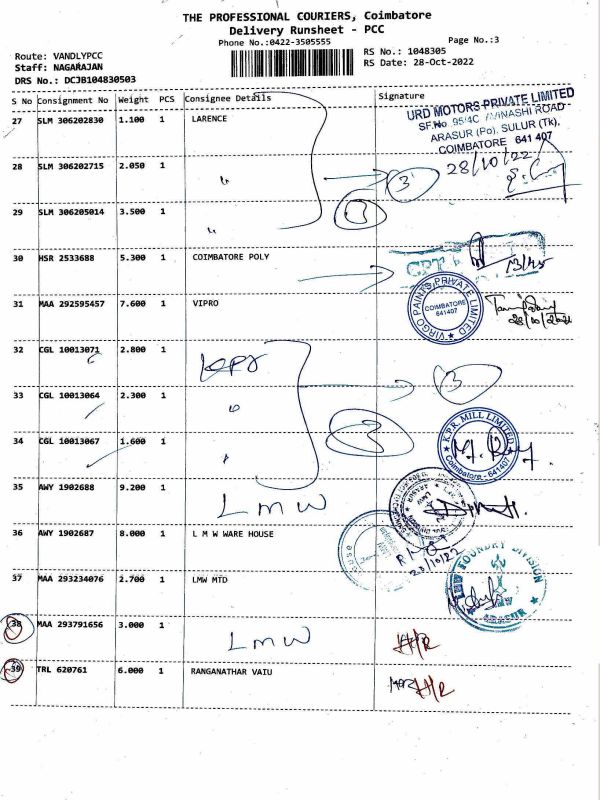 THE PROFESSIONAL COURIERS, Coimbatore
Delivery Runsheet - PCC
Phone No.:0422-3505555
Page No.:3
Route: VANDLYPCC
Staff: NAGARAJAN
DRS No.: DCJB104830503
RS No.: 1048305
RS Date: 28-Oct-2022
S No Consignment No Weight PCS Consignee Details Signature
27 SLM 306202830 1.100 1 LARENCE
URD MOTORS PRIVATE LIMITED
SF.No. 95/4C AVINASHI ROAD
ARASUR (Po), SULUR (Tk),
COIMBATORE 641 407
28/10/22
28 SLM 306202715 2.050 1 "
3
29 SLM 306205014 3.500 1 "
3
30 HSR 2533688 5.300 1 COIMBATORE POLY
31 MAA 292595457 7.600 1 VIPRO
VIRGO PAINTS PRIVATE LIMITED
COIMBATORE
641407
32 CGL 10013071 2.800 1 KPR
3
33 CGL 10013064 2.300 1 "
3
34 CGL 10013067 1.600 1 "
K.P.R. MILL LIMITED
Coimbatore - 641407
35 AWY 1902688 9.200 1 LMW
36 AWY 1902687 8.000 1 L M W WARE HOUSE
37 MAA 293234076 2.700 1 LMW MTD
FOUNDRY DIVISION
LMW
ARASUR
38 MAA 293791656 3.000 1 LMW
H/R
39 TRL 620761 6.000 1 RANGANATHAR VAIU
H/R